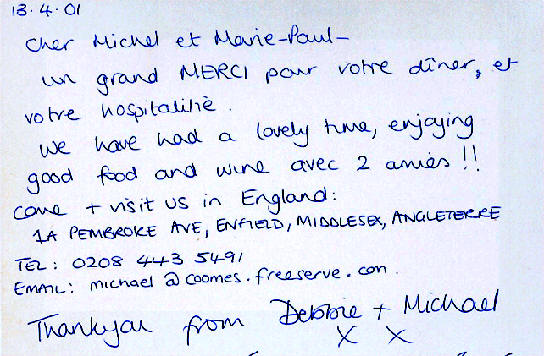 13.4.01
cher Michel et Marie-Paul-
un grand MERCI pour votre dîner, et
votre hospitalité.
We have had a lovely time, enjoying
good food and wine avec 2 amies !!
come + visit us in England:
1A PEMBROKE AVE, ENFIELD, MIDDLESEX, ANGLETERRE
TEL: 0208 443 5491
EMAIL: michael@coomes.freeserve.com.
Thankyou from Debbie + Michael
X X